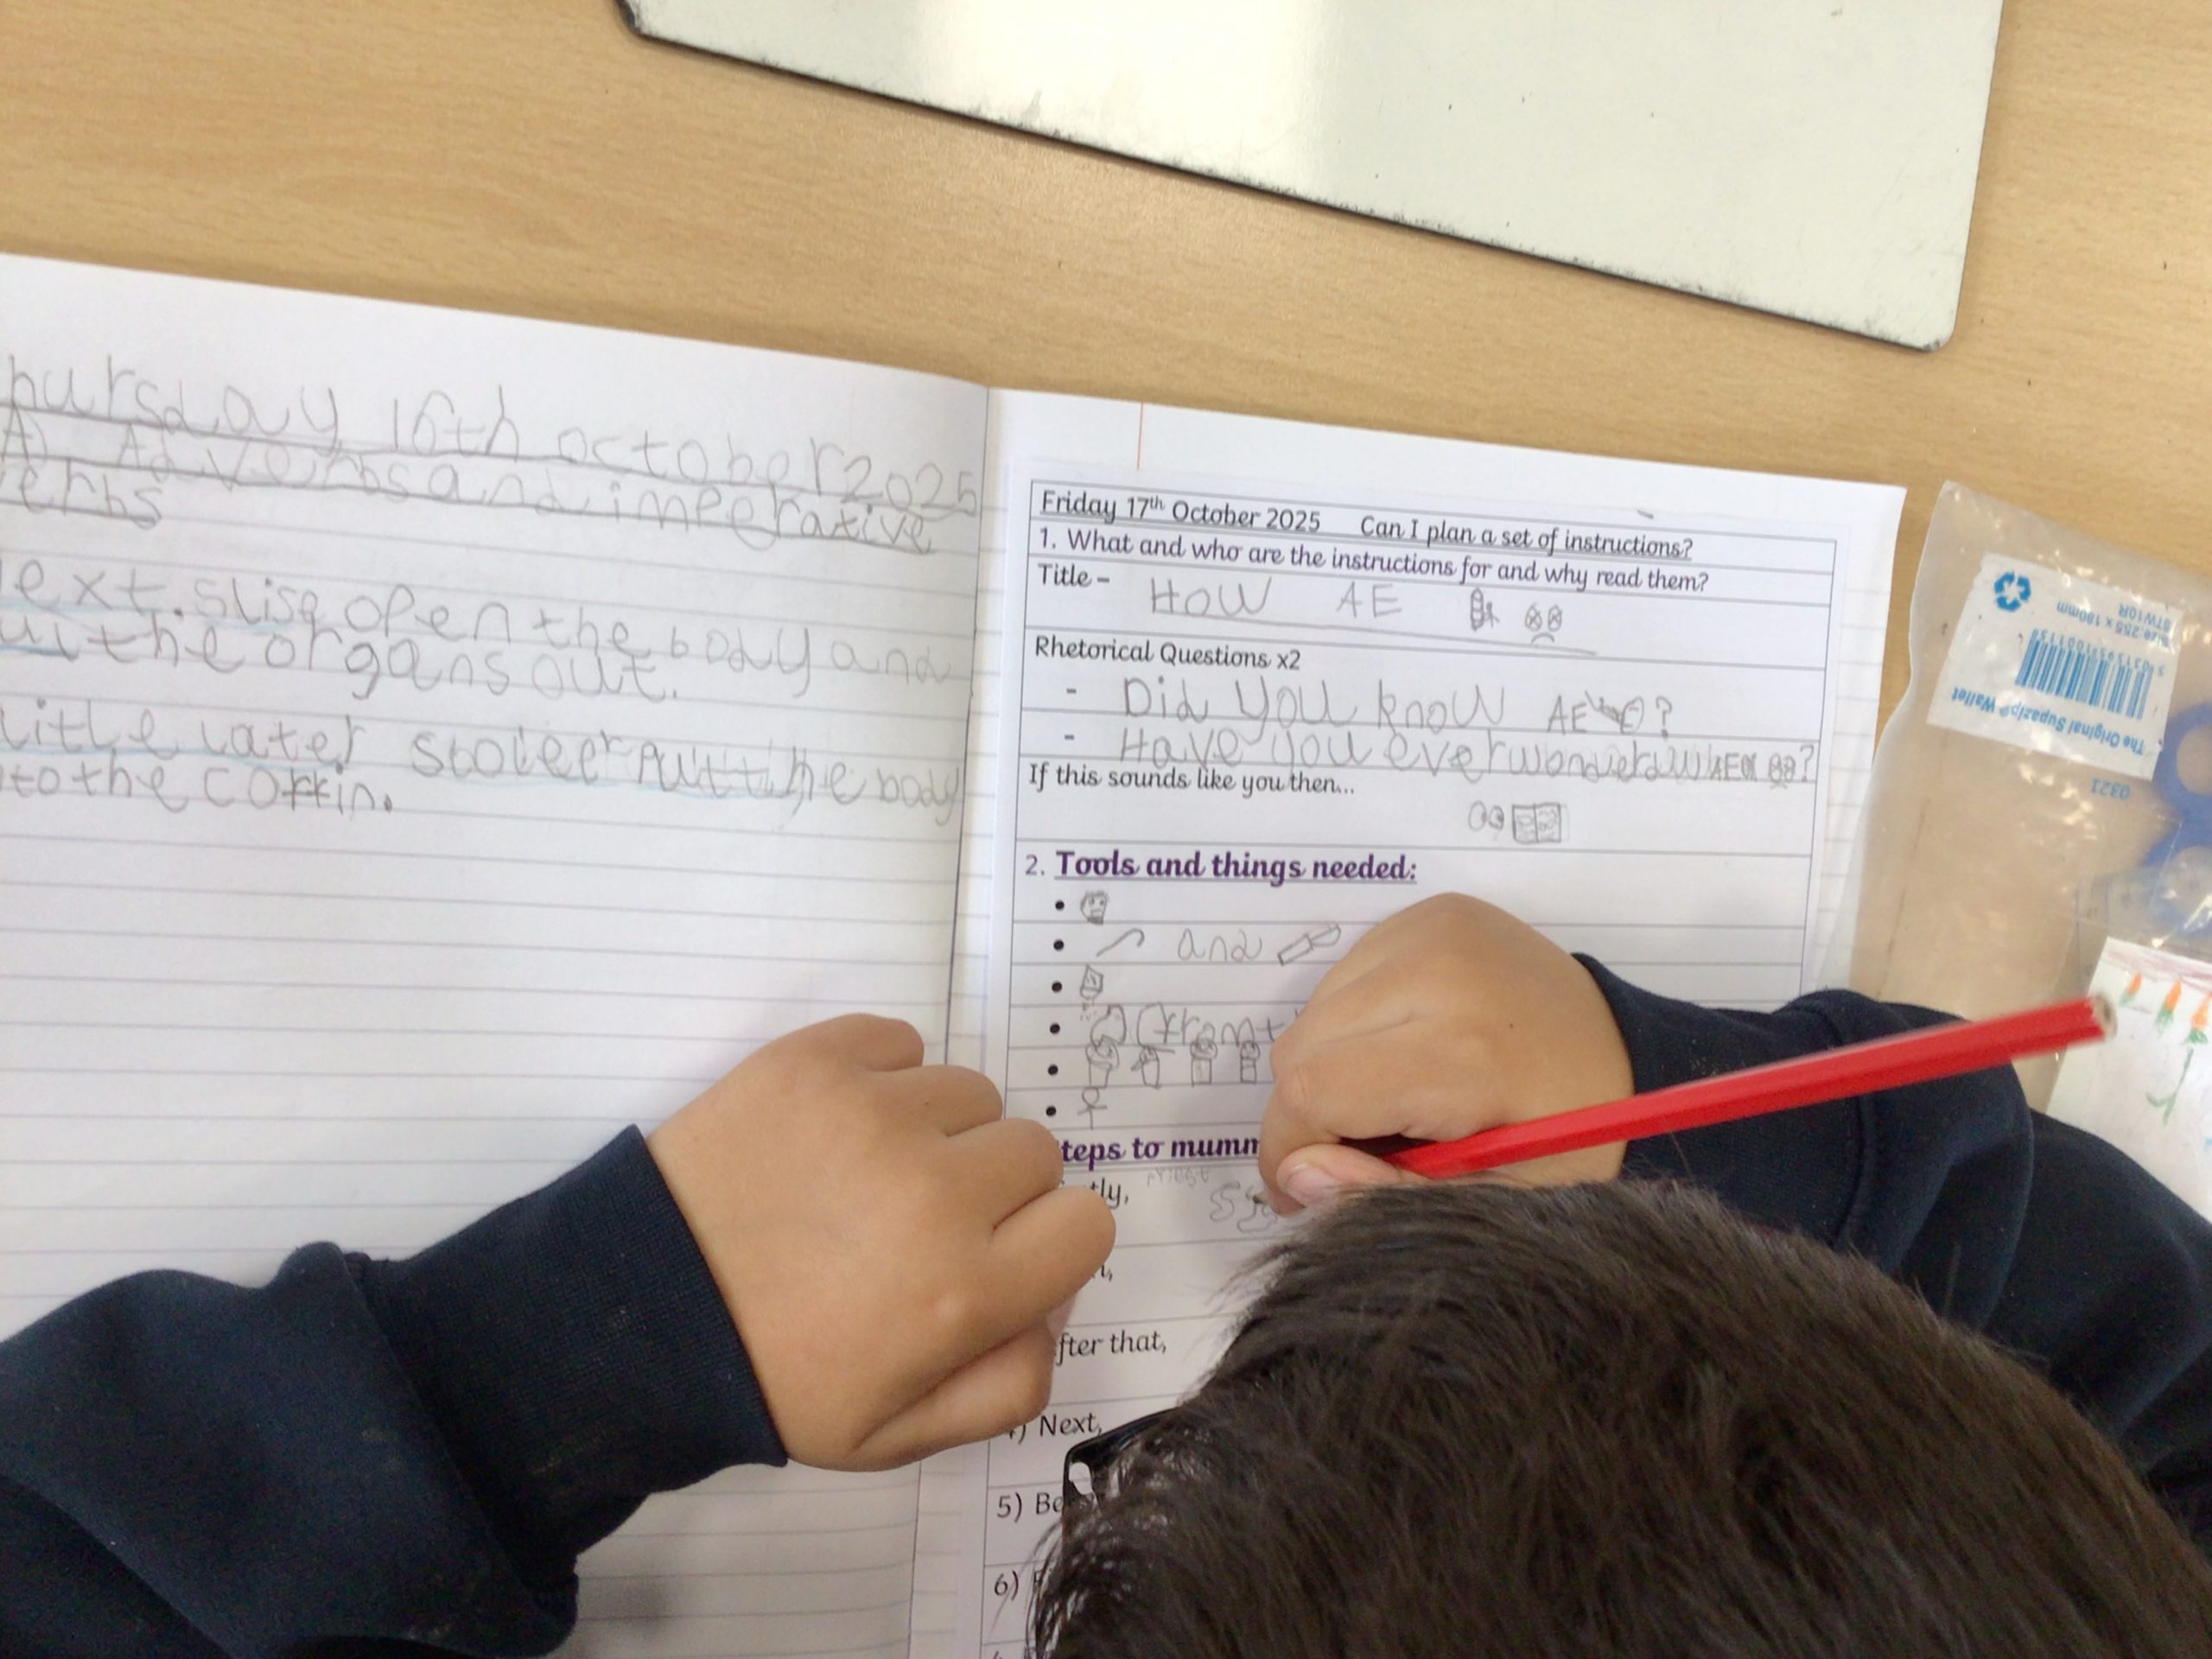 hursday 16th october 2025
A) Adverbs and imperative
verbs
ext. slise open the body and
the organs out.
little later put the body
to the coffin.
Friday 17th October 2025 Can I plan a set of instructions?
1. What and who are the instructions for and why read them?
Title – How AE
Rhetorical Questions x2
- Did you know AE ?
- Have you ever wonderd AE ?
If this sounds like you then...
2. Tools and things needed:
•
• and
•
•
•
•
teps to mumm
tly,
fter that,
Next,
5) Be
6)
The Original Supazip® Wallet
Size 255 x 180mm
STW10R
0321